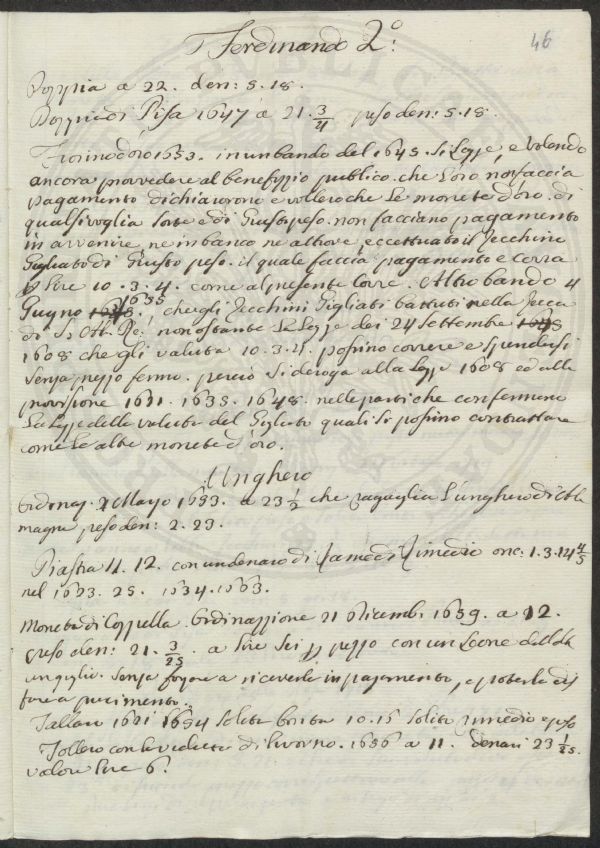 46
Ferdinando 2.º
Doppia a 22. den: 5.18.
Doppia di Pisa 1647 a 21. 3/4 peso den: 5.18.
Fiorino d'oro 1653. in un bando del 1645. si legge, e volendo
ancora provvedere al benefizio publico che l'oro non faccia
pagamento dichiarorono e vollero che le monete d'oro di
qualsivoglia sorte e di giusto peso. non facciano pagamento
in avvenire, ne in banco ne altrove, eccettuato il Zecchino
Gigliato di giusto peso. il quale faccia pagamento e corra
p lire 10. 3. 4. come al presente corre. Altro bando 4
Gugno 1655. che gli Zecchini Gigliati battuti nella Zecca
di S. Alt. Re: non ostante la legge dei 24 Settembre
1608 che gli valuta 10.3.4. possino correre e spendersi
senza prezzo fermo. perciò si deroga alla legge 1608 ed alle
provisione 1631. 1635. 1648. nelle parti che confermano
la legge delle valute del Gigliato quali si possino contrattare
come le altre monete d'oro.
Unghero
Ordinaz. Mayo 1653. a 23 1/2 che ragualia l'unghero di Ale
magna peso den: 2. 23.
Piastra 11. 12. con un denaro di rimedio onc: 1.3.14 4/5
nel 1623. 25. 1634. 1663.
Moneta di Coppella Ordinazzione 21 Dicemb. 1639. a 12.
peso den: 21. 3/25 a lire sei p pezzo con un Leone
un giglio. senza forza a riceverle in pagamento, e poterle
fare a piacimento.
Tallaro 1631 1654 solita bontà 10.15 solito rimedio e peso
Tollero con la veduta di Livorno. 1656 a 11. denari 23 1/25.
valore lire 6.